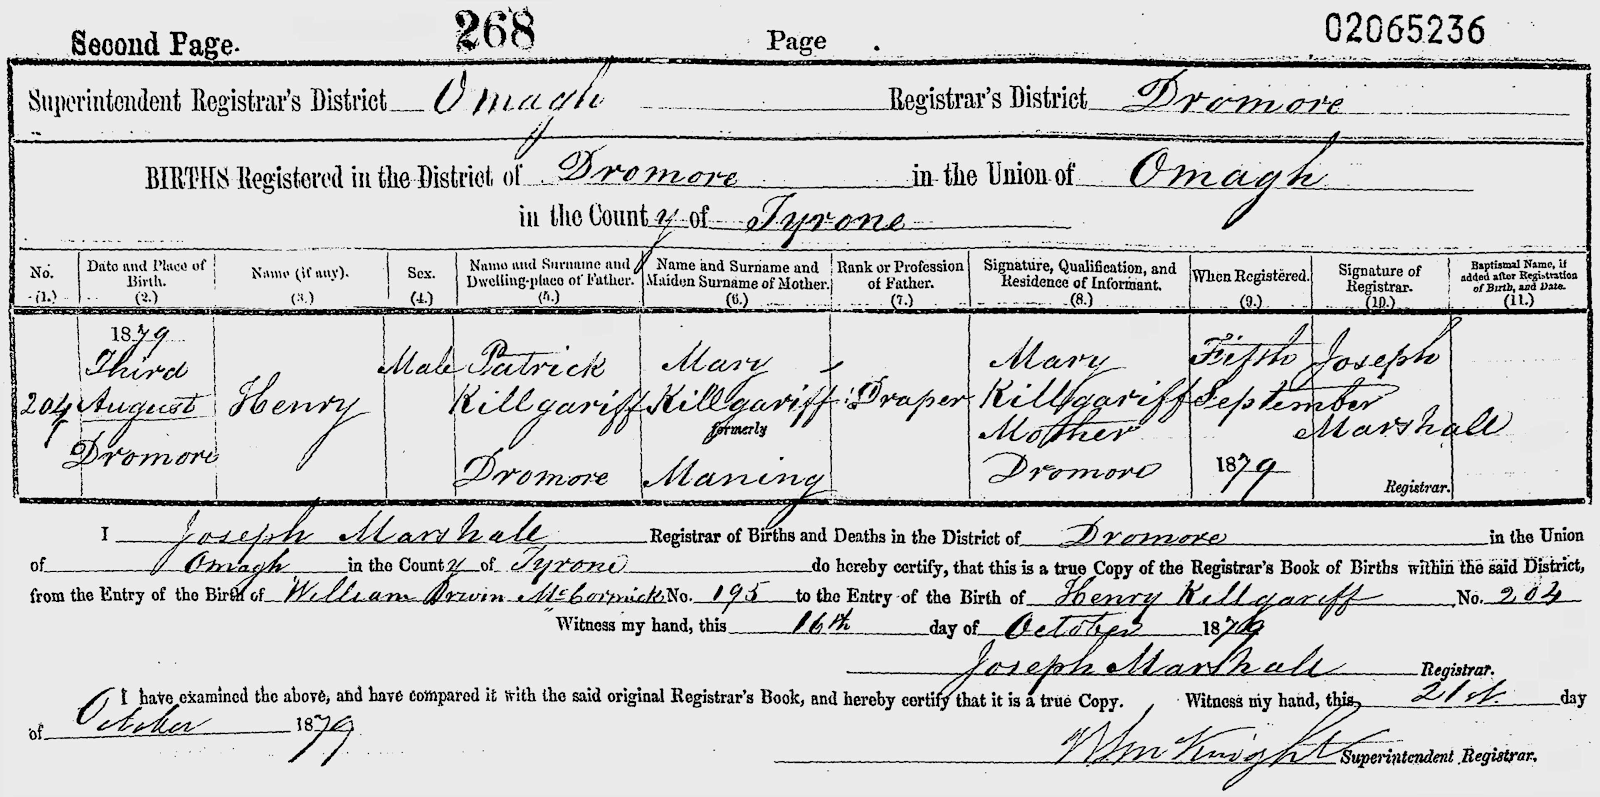 Second Page. 268 Page . 02065236
Superintendent Registrar's District Omagh Registrar's District Dromore
BIRTHS Registered in the District of Dromore in the Union of Omagh
in the County of Tyrone
No. (1.)
Date and Place of Birth. (2.)
Name (if any). (3.)
Sex. (4.)
Name and Surname and Dwelling-place of Father. (5.)
Name and Surname and Maiden Surname of Mother. (6.)
Rank or Profession of Father. (7.)
Signature, Qualification, and Residence of Informant. (8.)
When Registered. (9.)
Signature of Registrar. (10.)
Baptismal Name, if added after Registration of Birth, and Date. (11.)
204
1879 Third August Dromore
Henry
Male
Patrick Killgariff Dromore
Mary Killgariff formerly Maning
Draper
Mary Killgariff Mother Dromore
Fifth September 1879
Joseph Marshall Registrar.
I Joseph Marshall Registrar of Births and Deaths in the District of Dromore in the Union
of Omagh in the County of Tyrone do hereby certify, that this is a true Copy of the Registrar's Book of Births within the said District,
from the Entry of the Birth of William Irwin McCormick No. 195 to the Entry of the Birth of Henry Killgariff No. 204
Witness my hand, this 16th day of October 1879
Joseph Marshall Registrar.
I have examined the above, and have compared it with the said original Registrar's Book, and hereby certify that it is a true Copy. Witness my hand, this 21st day
of October 1879
Knight Superintendent Registrar.